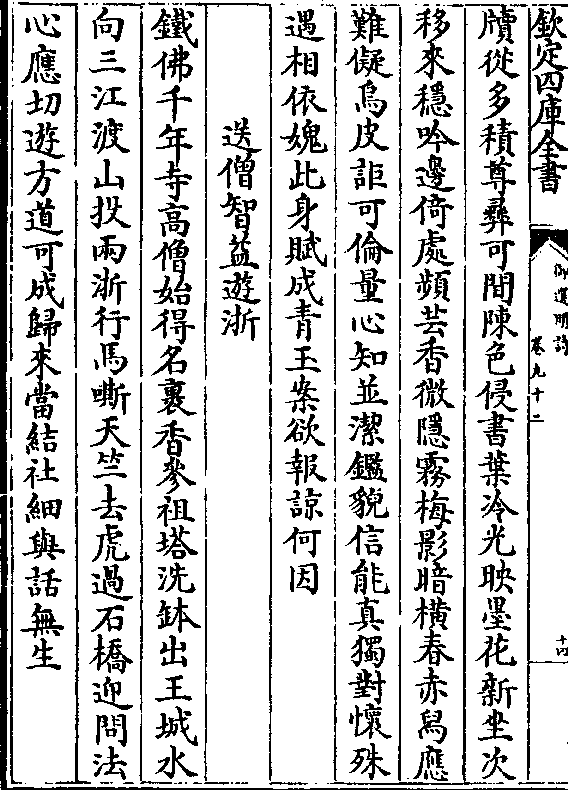 欽定四庫全書
御選明詩
卷九十二
十四
牘從多積尊彞可間陳色侵書葉冷光映墨花新坐次
移來穩吟邊倚處頻芸香微隱霧梅影暗橫春赤舄應
難儗烏皮詎可倫量心知並潔鑑貌信能真獨對懷殊
遇相依媿此身賦成青玉案欲報諒何因
送僧智益遊浙
鐵佛千年寺高僧始得名裹香參祖塔洗鉢出王城水
向三江渡山投兩浙行馬嘶天竺去虎過石橋迎問法
心應切遊方道可成歸來當結社細與話無生